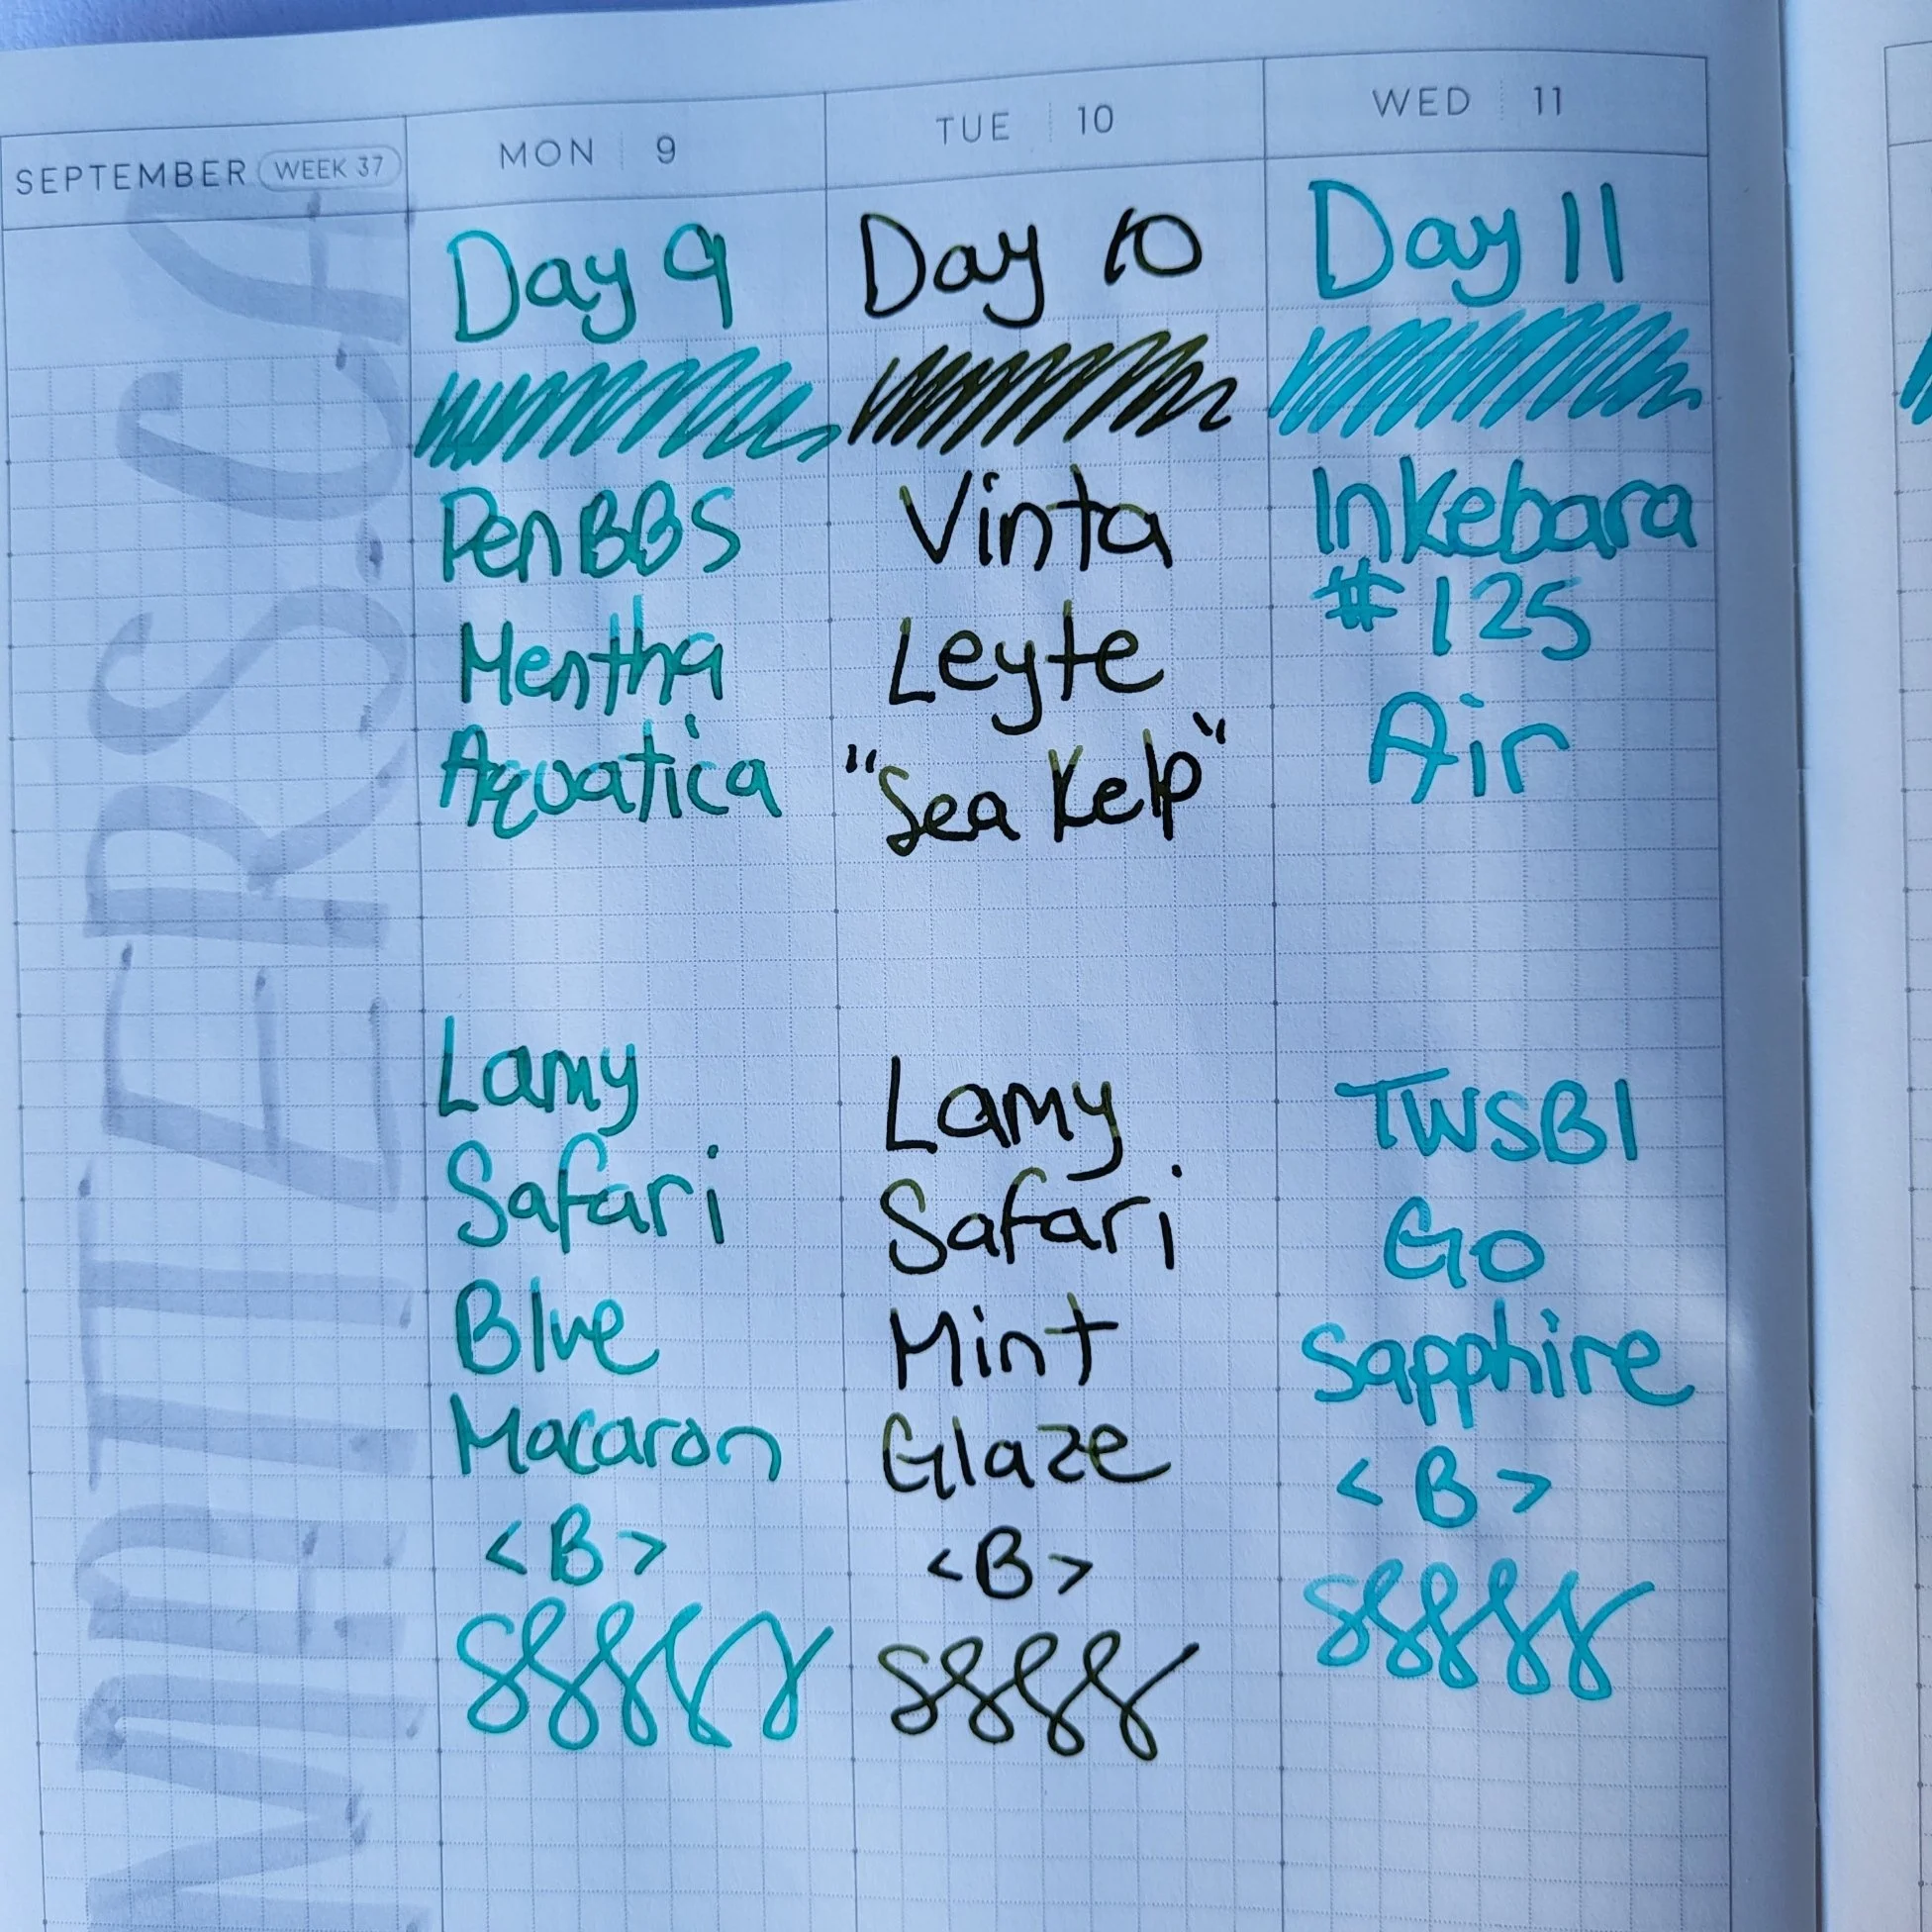 SEPTEMBER WEEK 37
MON 9
TUE 10
WED 11
Day 9
PenBBS
Mentha
Aquatica
Lamy
Safari
Blue
Macaron
<B>
Day 10
Vinta
Leyte
"Sea Kelp"
Lamy
Safari
Mint
Glaze
<B>
Day 11
Inkebara
#125
Air
TWSBI
Go
Sapphire
<B>